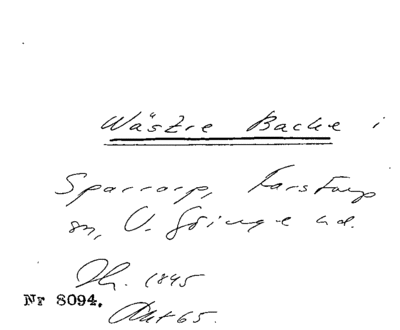 Wästre Backe i
Sparrarp, Farstorp
sn, V. Göinge hd.
Th. 1845
Nr 8094.
Akt 65.